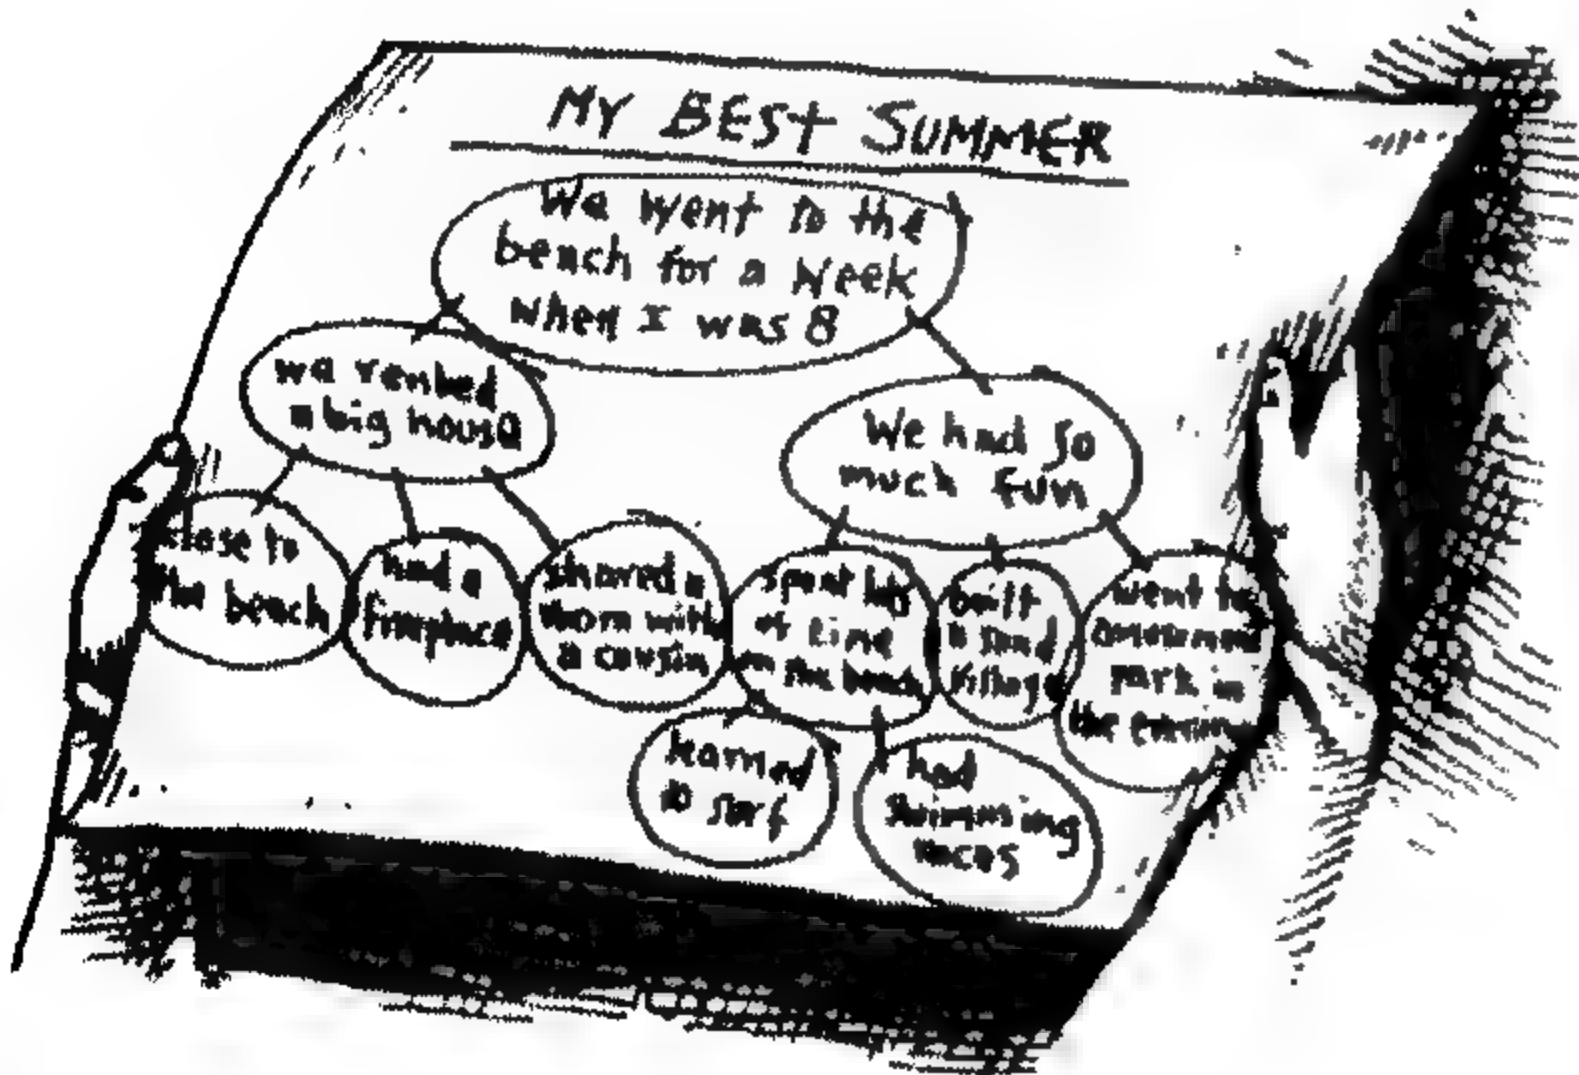 MY BEST SUMMER
We went to the
beach for a week
when I was 8
we rented
a big house
We had so
much fun
close to
the beach
had a
fireplace
shared a
room with
a cousin
spent lots
of time
on the beach
built
a sand
village
went to
amusement
park in
the evening
learned
to surf
had
swimming
races